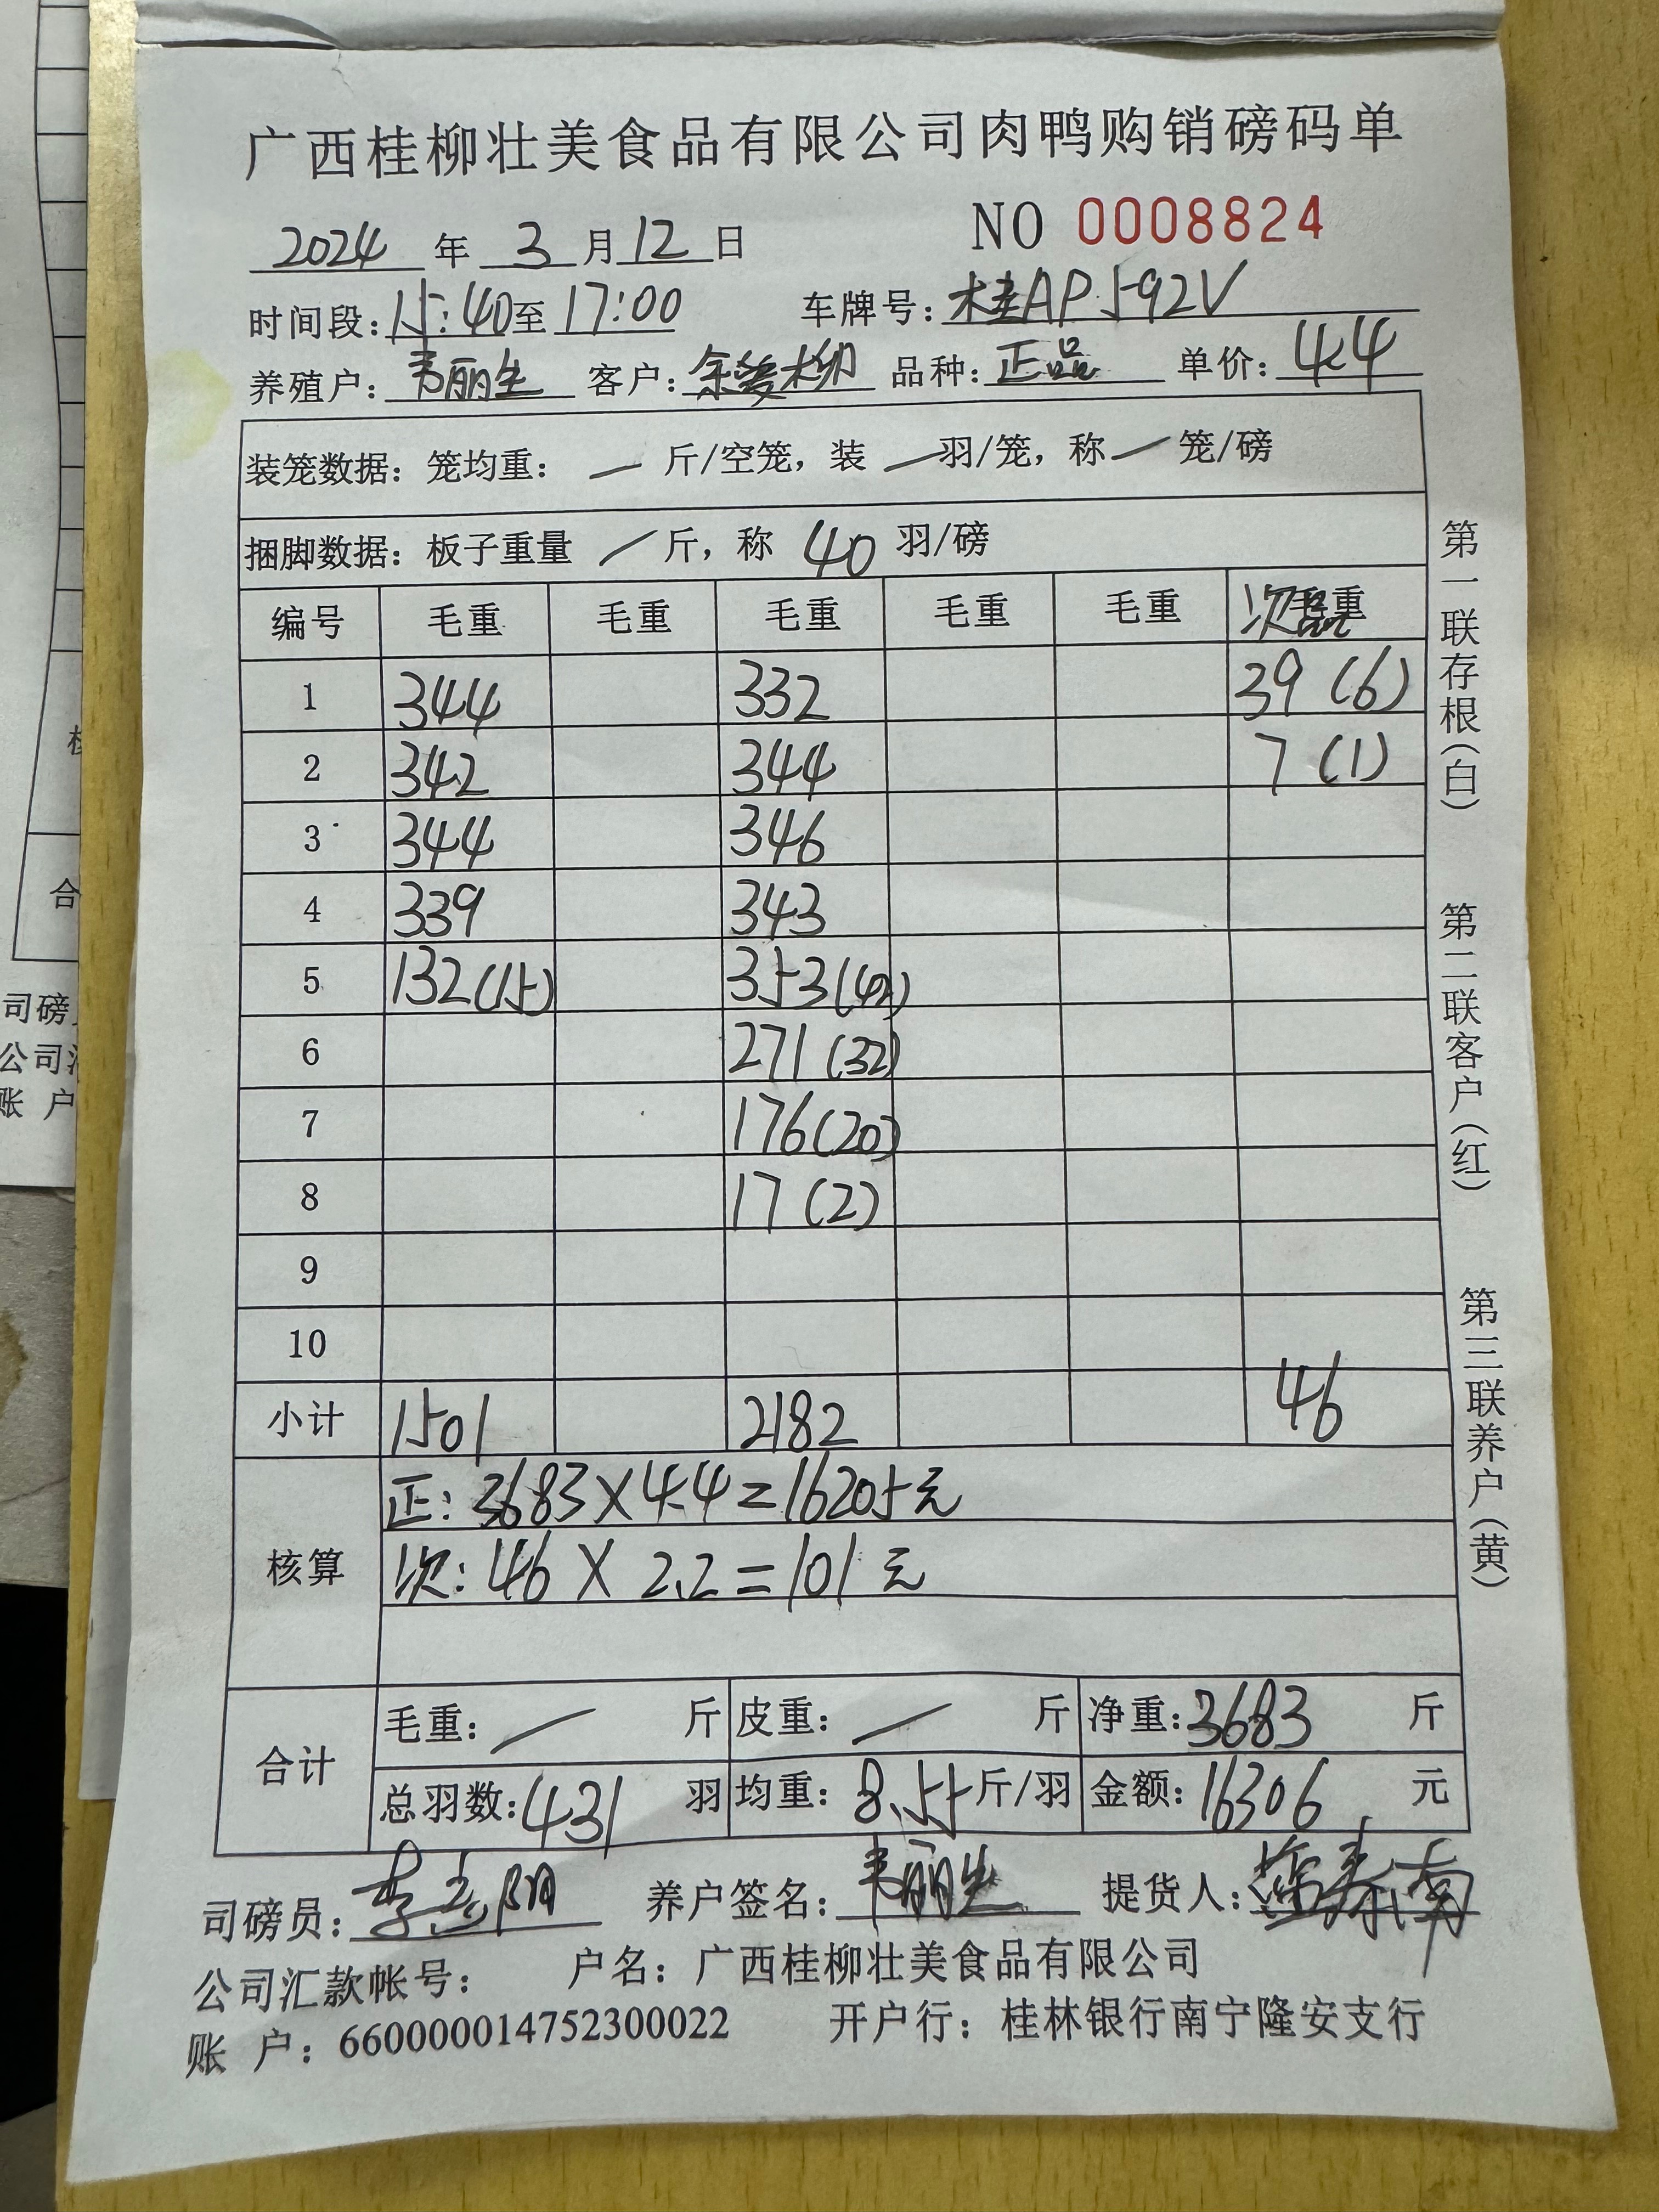 广西桂柳壮美食品有限公司肉鸭购销磅码单
NO 0008824
2024 年 3 月 12 日
时间段: 15:40 至 17:00 车牌号: 桂AP592V
养殖户: 韦丽生 客户: 余爱柳 品种: 正品 单价: 4.4
装笼数据: 笼均重: / 斤/空笼, 装 / 羽/笼, 称 / 笼/磅
捆脚数据: 板子重量 / 斤, 称 40 羽/磅
编号 毛重 毛重 毛重 毛重 毛重 次品
1 344 332 39 (6)
2 342 344 7 (1)
3 344 346
4 339 343
5 132 (15) 353 (42)
6 271 (32)
7 176 (20)
8 17 (2)
9
10
小计 1501 2182 46
核算
正: 3683×4.4=16205元
次: 46×2.2=101元
合计
毛重: / 斤 皮重: / 斤 净重: 3683 斤
总羽数: 431 羽 均重: 8.55 斤/羽 金额: 16306 元
司磅员: 养户签名: 韦丽生 提货人:
公司汇款帐号: 户名: 广西桂柳壮美食品有限公司
账 户: 660000014752300022 开户行: 桂林银行南宁隆安支行
第一联存根(白)
第二联客户(红)
第三联养户(黄)
合
司磅
公司
账 户